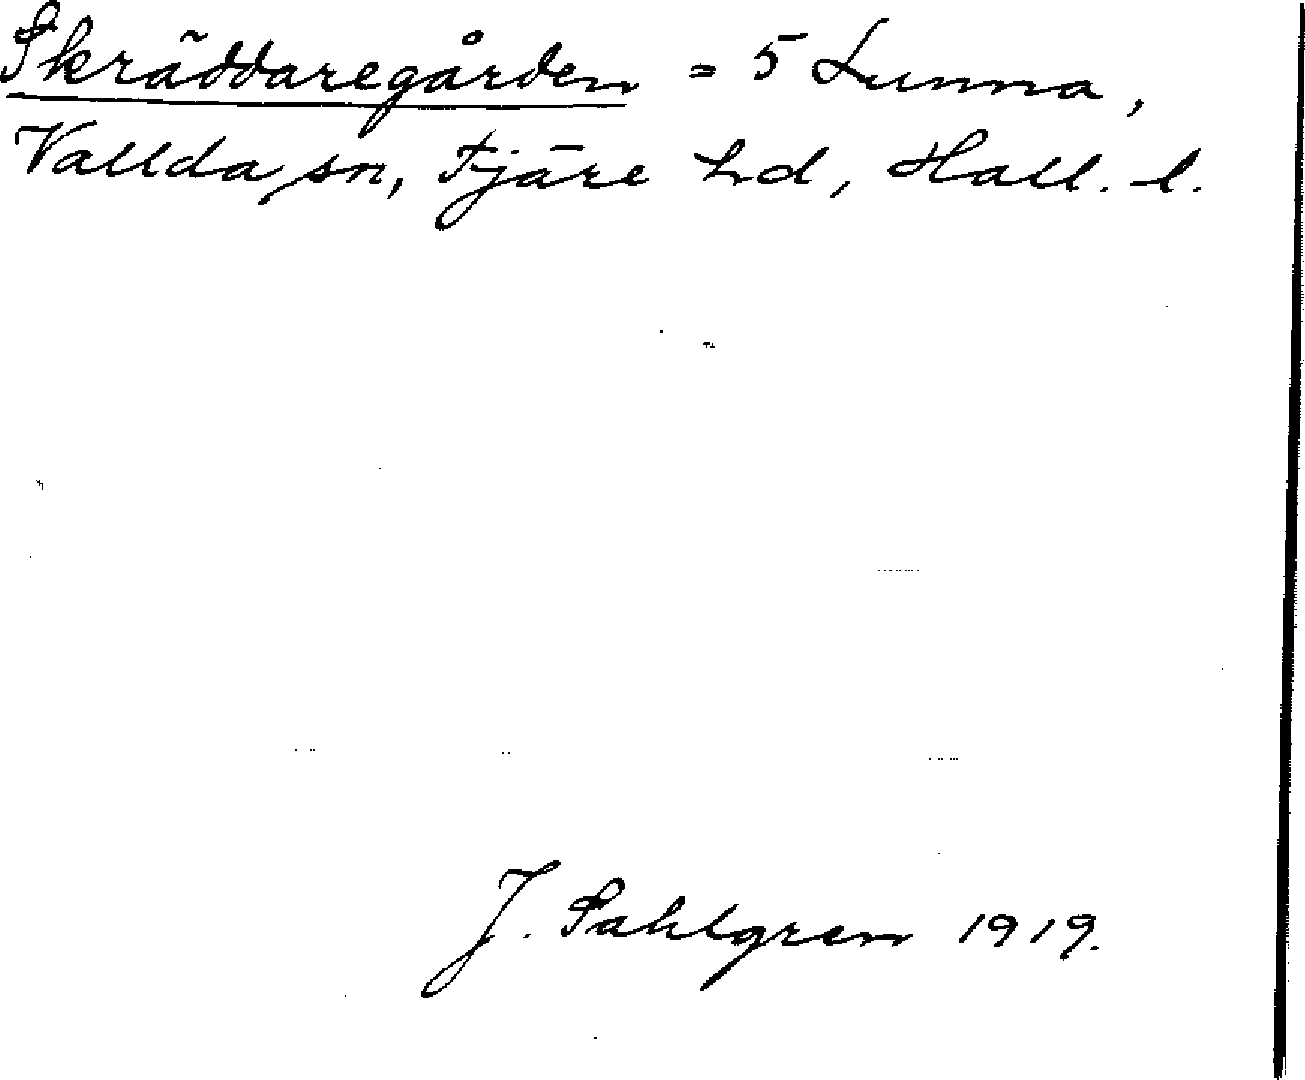 Skräddaregården = 5 Lunna,
Vallda sn, Fjäre hd, Hall. l.
J. Sahlgren 1919.